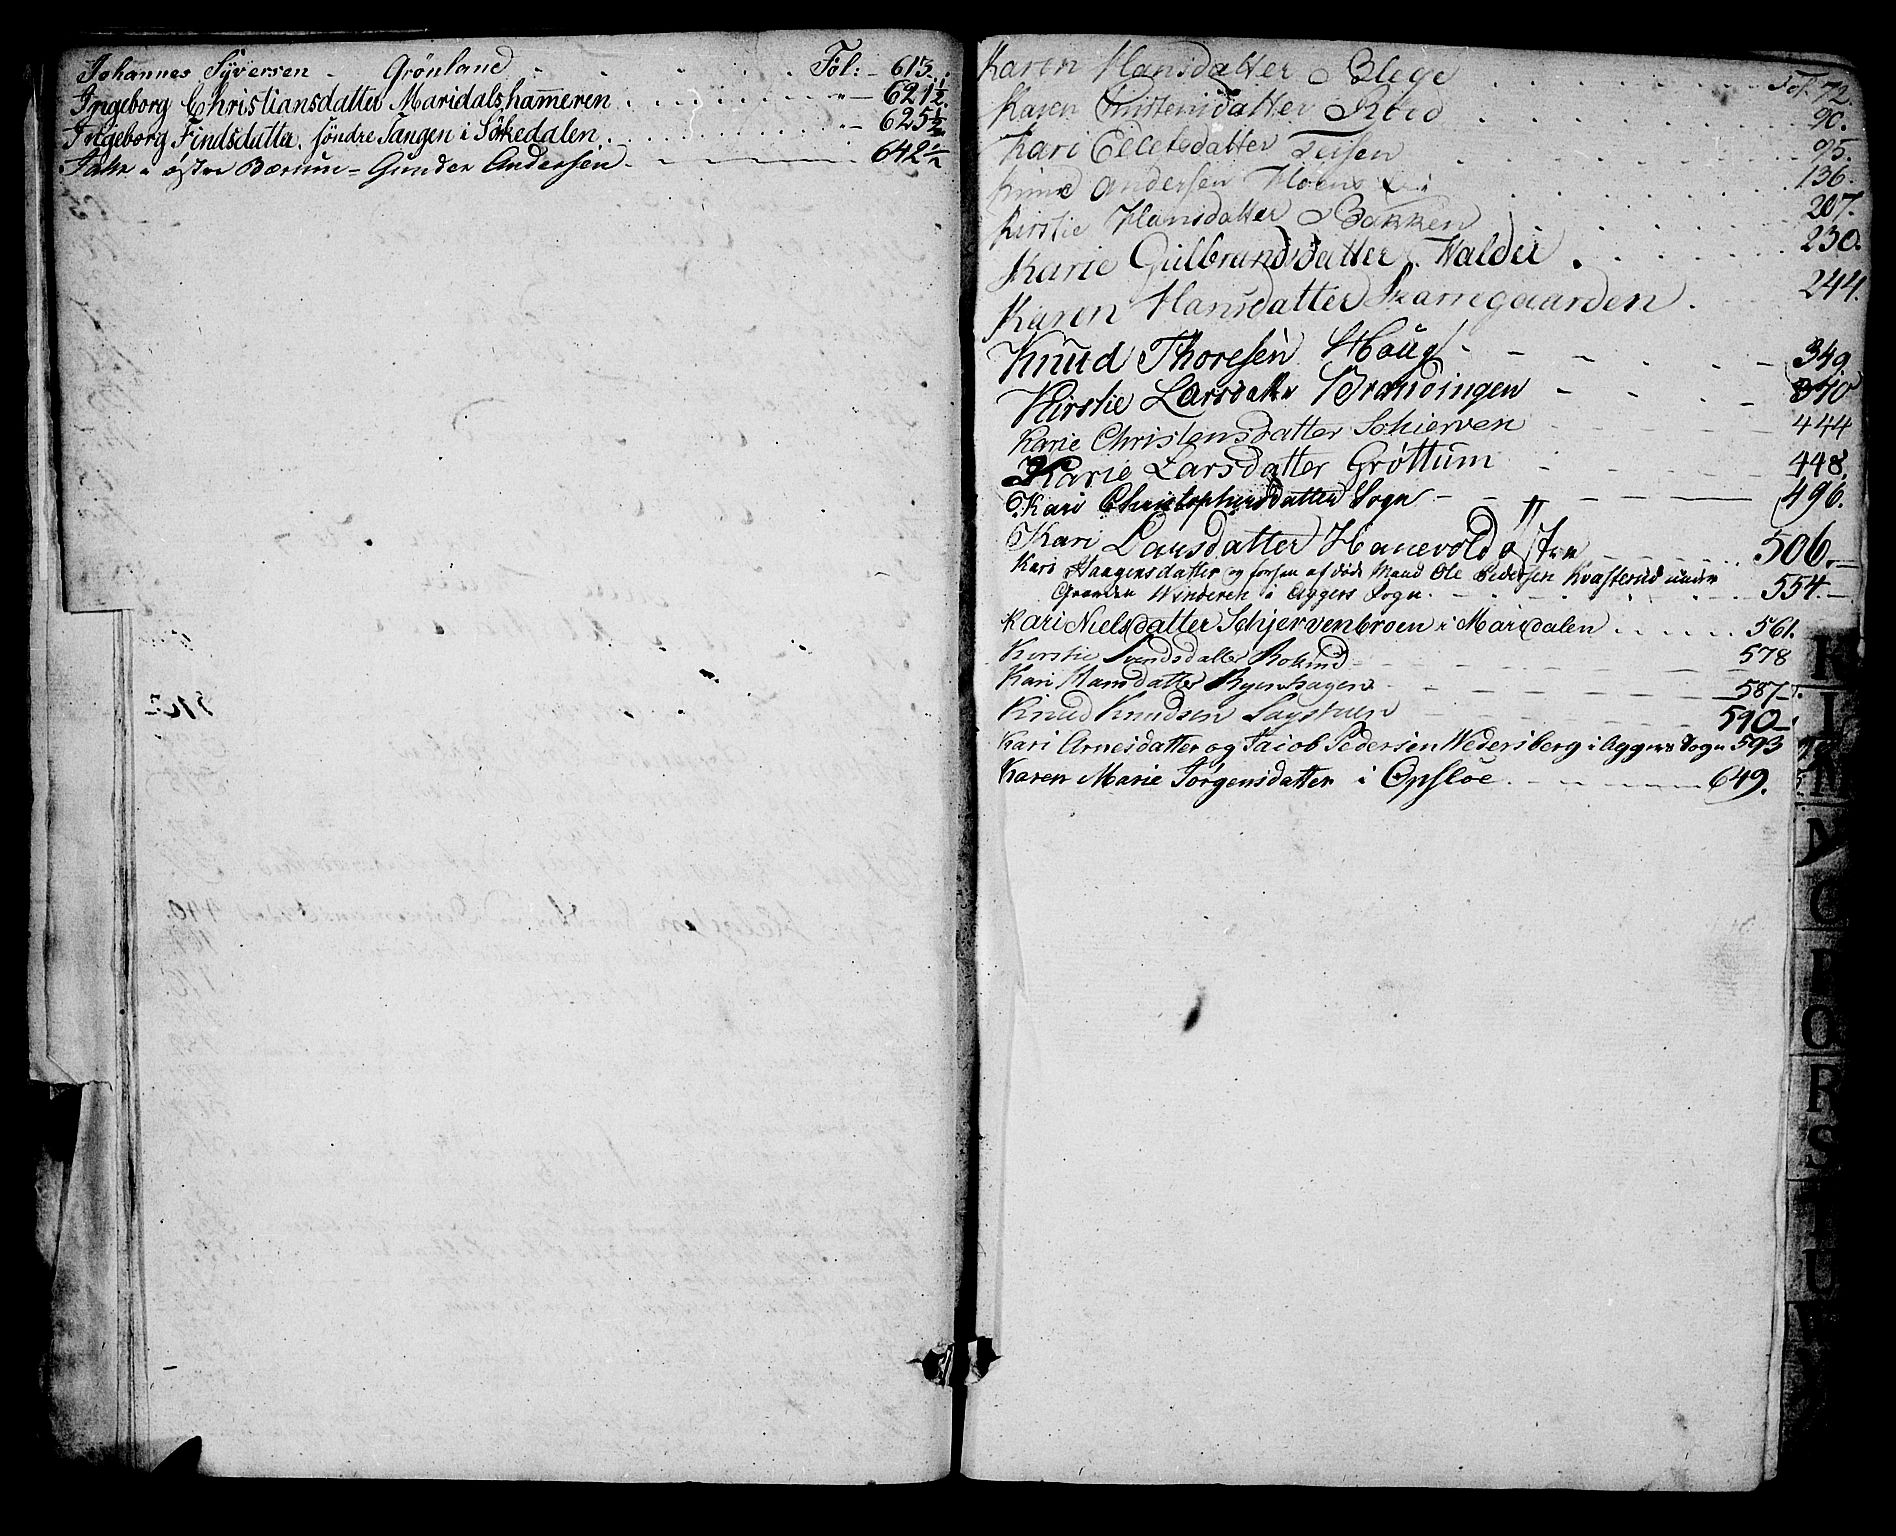 Johannes Syversen - Grönland . . . . . Fol: - 613.
Ingeborg Christiansdatter Maridalshameren . . . . . . . " - 621½.
Ingeborg Findsdatter, söndre Tangen i Sörkedalen . . . . . . " - 625½
Jahr i östre Bærum - Gunder Andersen . . . 642½
Karen Hansdatter Blege . . . . . Fol. 72.
Karen Christensdatter . . . . . 90.
Kari Ellefsdatter Teisen . . . . . 95.
Andersen . . . . . 136.
Kirstie Hansdatter Bakken . . . . . 207.
Karie Gulbrandsdatter Walder . . . . . 230.
Karen Hansdatter . . . 244.
Knud Thoresen Houg - - - - 349
Kirstie Larsdatter Brændingen - - - - 370
Karie Christensdatter Schierven - - - 444
Karie Larsdatter Grøttum - - - 448.
Kari Christophersdatter Sogn - - - - 496.
Kari Larsdatter Hanevold østre - - - - 506.
Kari Haagensdatter og forhen afdøde Mand Ole Pedersen Kvasterud under
Gaarden Winderen i Aggers Sogn. - - - - 554.
Kari Nielsdatter Schjervenbroen i Maridalen . . . . . . 561.
Kirstie Svendsdatter - - - - 578
Kari Hansdatter Ryenshagen - - - - 587.
Knud Knudsen Laystuen - - - - 590
Kari Arnesdatter og Jacob Pedersen Wedersberg i Aggers Sogn 593
Karen Marie Jörgensdatter i Opsloe - - - - - 649.
K
L
M
N
O
P
Q
R
S
T
U